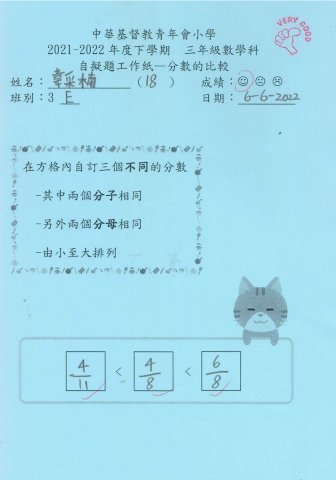 VERY GOOD
中華基督教青年會小學
2021-2022年度下學期 三年級數學科
自擬題工作紙—分數的比較
姓名：韋采楠（18） 成績：
班別：3 E 日期：6-6-2022
在方格內自訂三個不同的分數
-其中兩個分子相同
-另外兩個分母相同
-由小至大排列
4/11 < 4/8 < 6/8